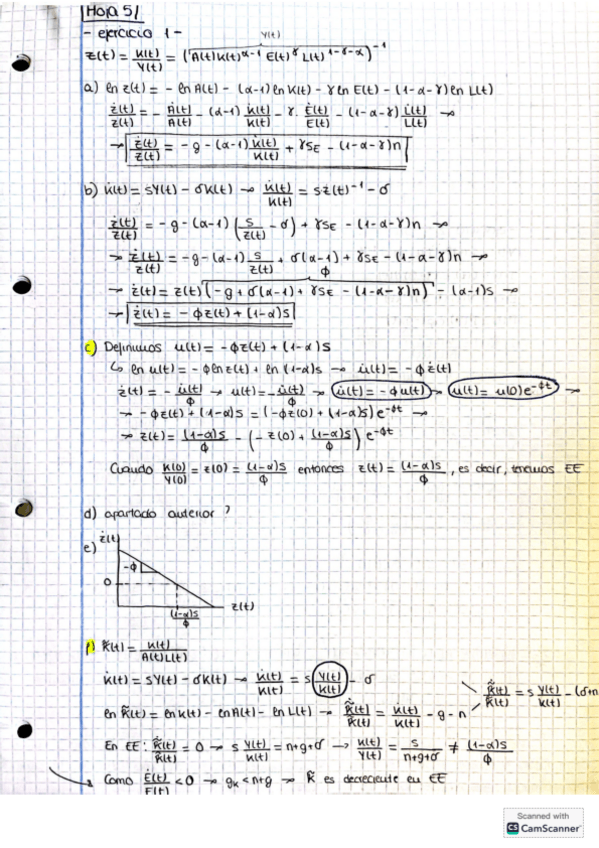 Hoja 5
- ejercicio 1 -
Y(t)
z(t) = K(t)/Y(t) = (A(t)K(t)^α-1 E(t)^γ L(t)^1-γ-α)^-1
a) ln z(t) = - ln A(t) - (α-1) ln K(t) - γ ln E(t) - (1-α-γ) ln L(t)
ż(t)/z(t) = - Ȧ(t)/A(t) - (α-1) K̇(t)/K(t) - γ · Ė(t)/E(t) - (1-α-γ) L̇(t)/L(t) →
→ ż(t)/z(t) = -g - (α-1) K̇(t)/K(t) + γs_E - (1-α-γ)n
b) K̇(t) = sY(t) - σK(t) → K̇(t)/K(t) = sz(t)^-1 - σ
ż(t)/z(t) = -g - (α-1) (s/z(t) - σ) + γs_E - (1-α-γ)n →
→ ż(t)/z(t) = -g - (α-1) s/z(t) + σ(α-1) + γs_E - (1-α-γ)n →
ϕ
→ ż(t) = z(t) (-g + σ(α-1) + γs_E - (1-α-γ)n) - (α-1)s →
→ ż(t) = -ϕz(t) + (1-α)s
c) Definimos u(t) = -ϕz(t) + (1-α)s
↳ ln u(t) = -ϕ ln z(t) + ln (1-α)s → u̇(t) = -ϕż(t)
ż(t) = - u̇(t)/ϕ → u(t) = - u̇(t)/ϕ → u̇(t) = -ϕu(t) → u(t) = u(0)e^-ϕt →
→ -ϕz(t) + (1-α)s = (-ϕz(0) + (1-α)s) e^-ϕt →
→ z(t) = (1-α)s/ϕ - (-z(0) + (1-α)s/ϕ) e^-ϕt
Cuando K(0)/Y(0) = z(0) = (1-α)s/ϕ entonces z(t) = (1-α)s/ϕ, es decir, tenemos EE
d) apartado anterior ?
e) ż(t)
-ϕ
0
z(t)
(1-α)s/ϕ
f) k̃(t) = K(t)/A(t)L(t)
K̇(t) = sY(t) - σK(t) → K̇(t)/K(t) = s Y(t)/K(t) - σ
ln k̃(t) = ln K(t) - ln A(t) - ln L(t) → k̃̇(t)/k̃(t) = K̇(t)/K(t) - g - n
k̃̇(t)/k̃(t) = s Y(t)/K(t) - (σ+n
En EE: k̃̇(t)/k̃(t) = 0 → s Y(t)/K(t) = n+g+σ → K(t)/Y(t) = s/n+g+σ ≠ (1-α)s/ϕ
Como Ė(t)/E(t) < 0 → g_K < n+g → k̃ es decreciente en EE
Scanned with
CS CamScanner